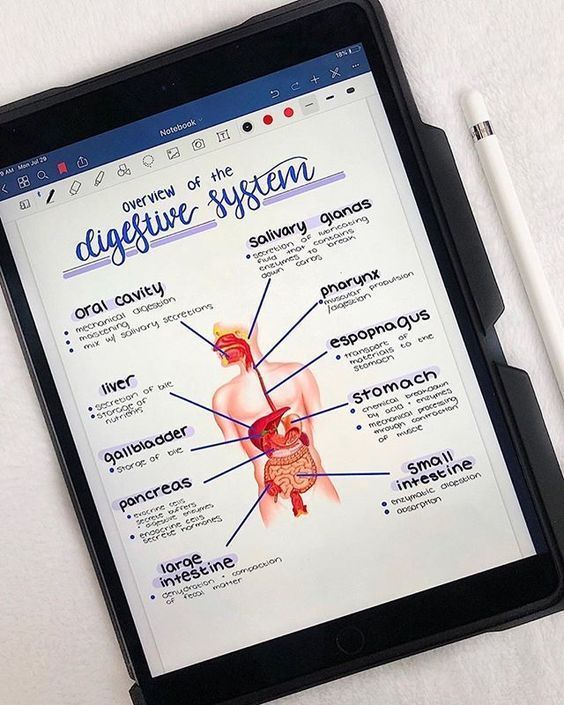 18%
9 AM Mon Jul 29
Notebook
overview of the
digestive system
salivary glands
secretion of lubricating
fluid that contains
enzymes to break
down carbs
oral cavity
mechanical digestion
mastening
mix w/ salivary secretions
pharynx
muscular propulsion
/digestion
espophagus
transport of
materials to the
stomach
liver
secretion of bile
storage of
nutrients
stomach
chemical breakdown
by acid + enzymes
mechanical processing
through contraction
of muscle
gallbladder
storge of bile
pancreas
exocrine cells
secrete buffers
+ digestive enzymes
endocrine cells
secrete hormones
small
intestine
enzymatic digestion
absorption
large
intestine
dehydration + compaction
of fecal matter